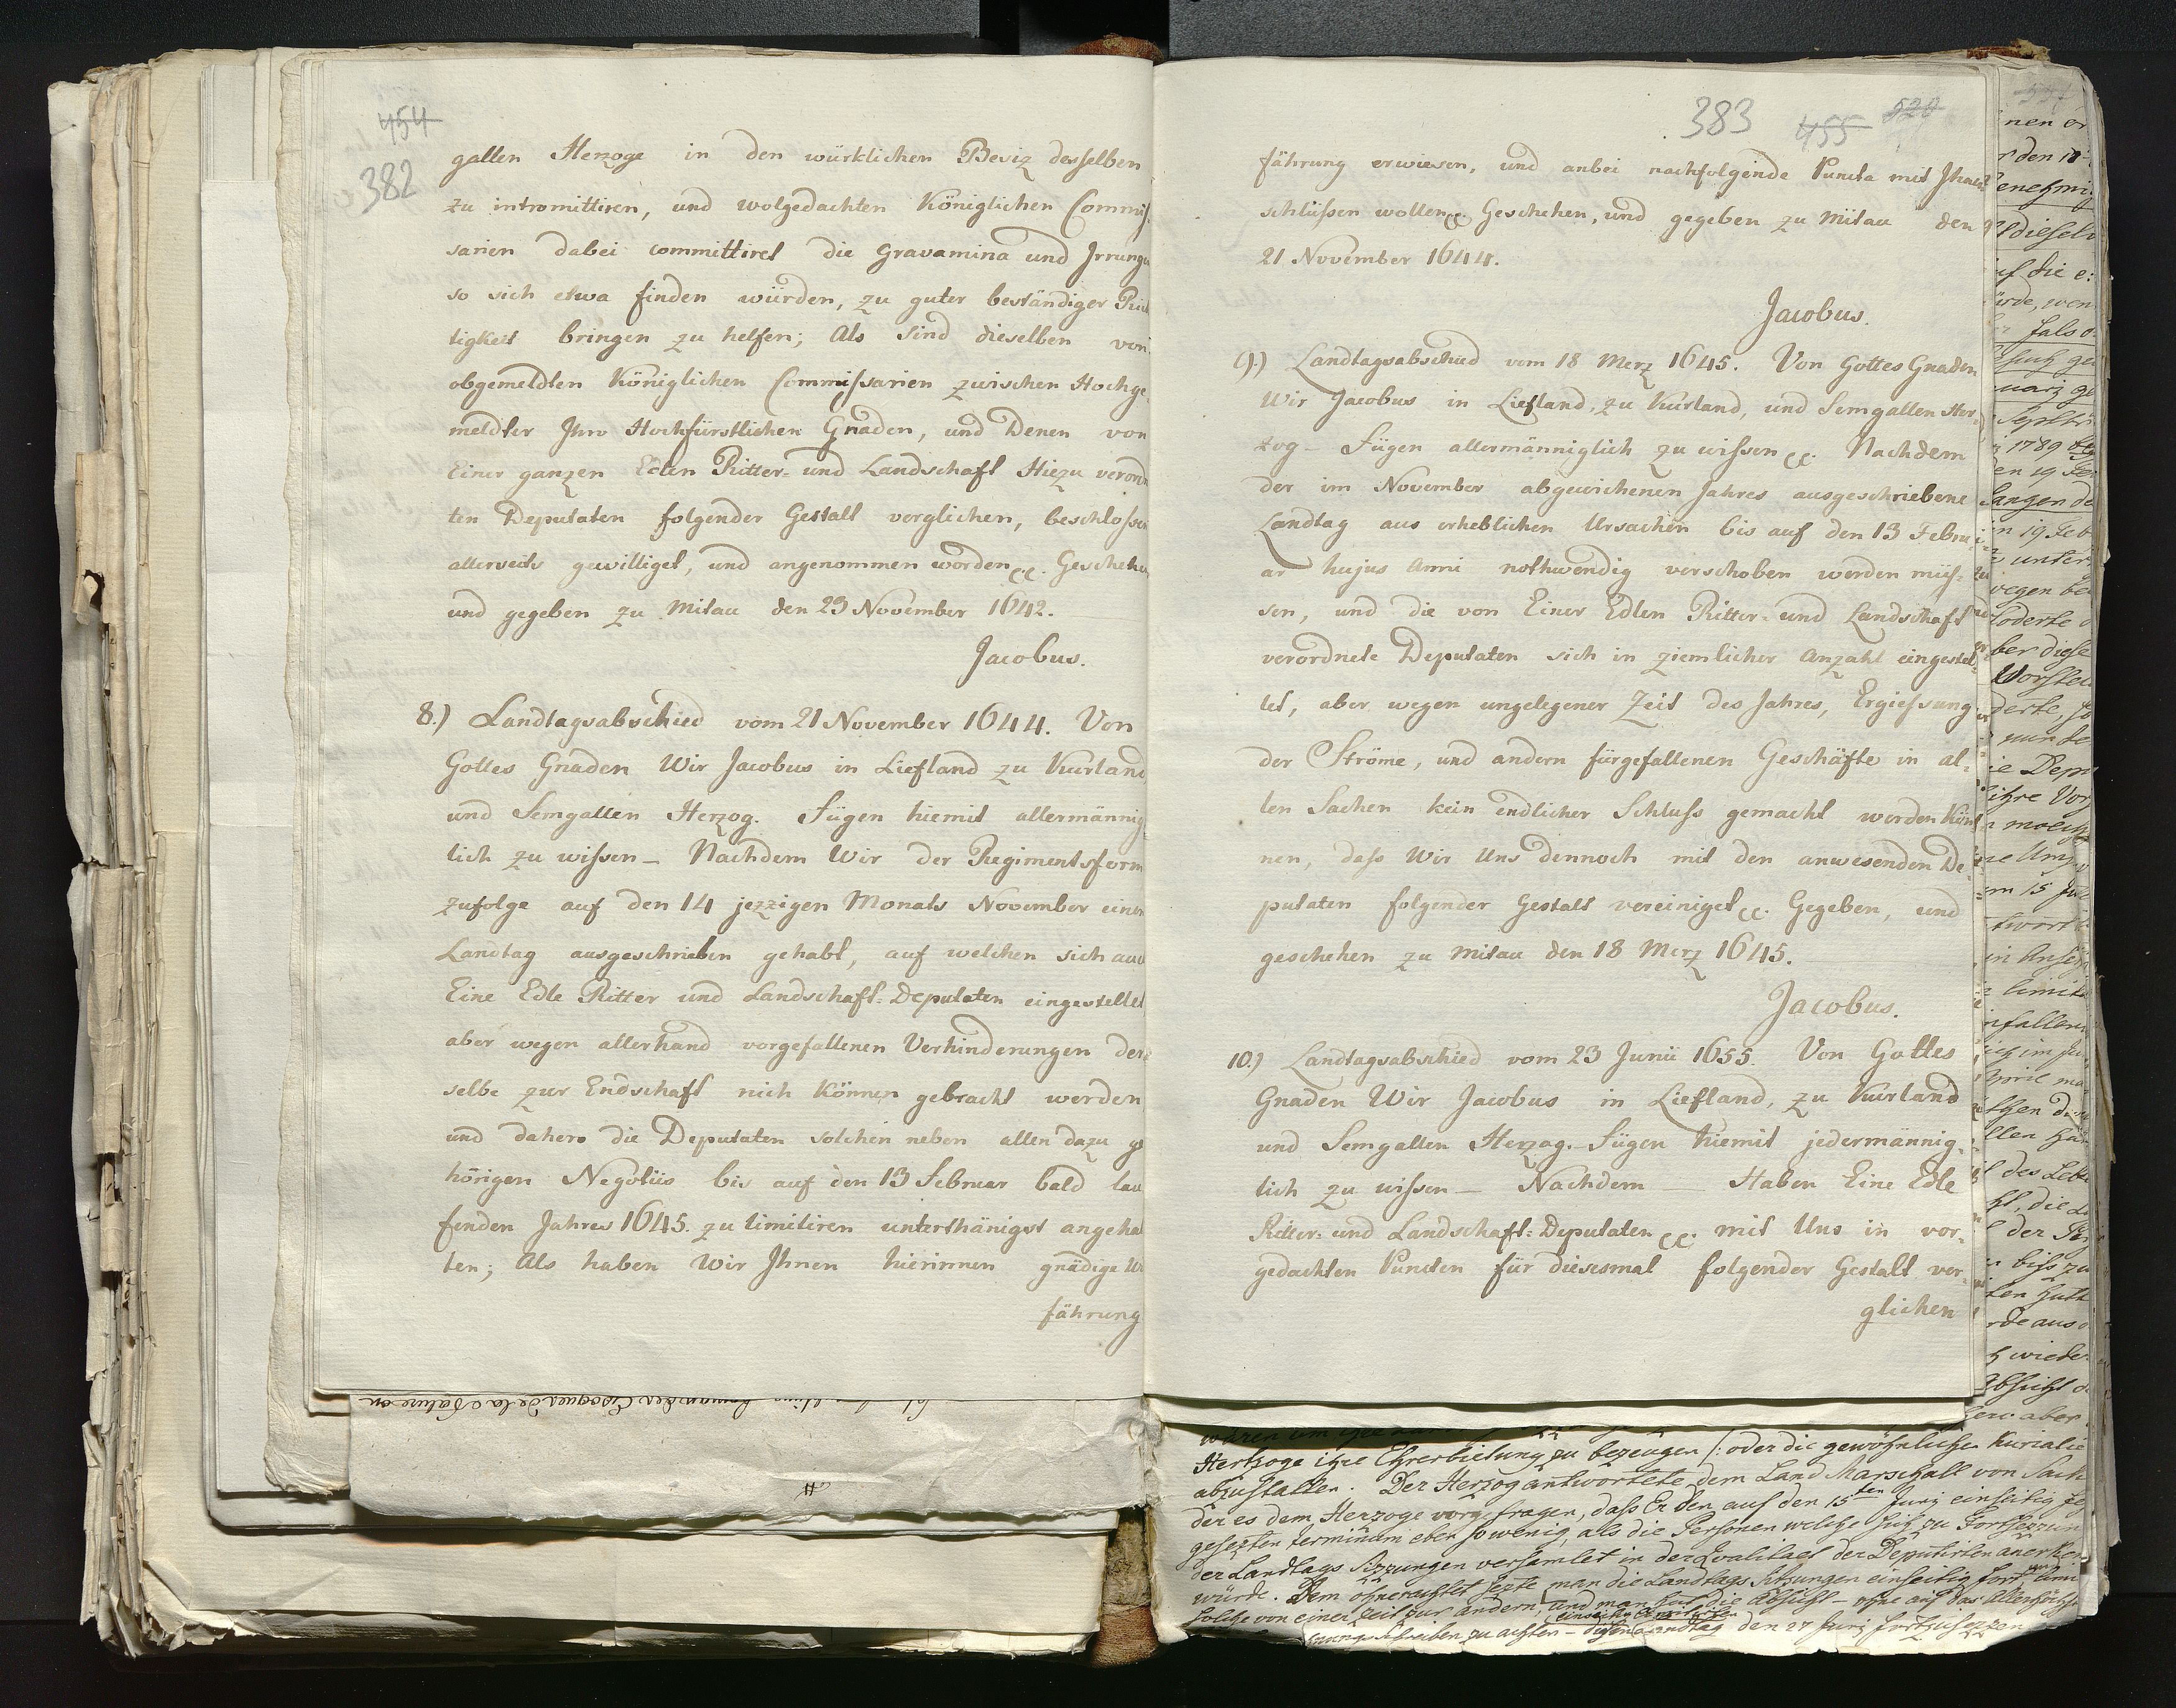 454
382
gallen Herzoge in den würklichen Besiz desselben
zu intromittiren, und wolgedachten Königlichen Commis
sarien dabei committiret die Gravamina und Irrunge
so sich etwa finden würden, zu guter beständiger Rich
tigkeit bringen zu helfen; Als sind dieselben von
obgemeldten Königlichen Commissarien zwischen Hochge
meldter Ihro Hochfürstlichen Gnaden, und Denen von
Einer ganzen Edlen Ritter- und Landschaft Hiezu verord
ten Deputaten folgender Gestalt verglichen, beschlossen
allerseits gewilliget, und angenommen worden cc. Geschehen
und gegeben zu Mitau den 23 November 1642.
Jacobus.
8.) Landtagsabschied vom 21 November 1644. Von
Gottes Gnaden Wir Jacobus in Liefland zu Kurland
und Semgallen Herzog. Fügen hiemit allermännig
lich zu wissen – Nachdem Wir der Regimentsform
zufolge auf den 14 jezzigen Monats November einen
Landtag ausgeschrieben gehabt, auf welchen sich auch
Eine Edle Ritter und Landschaft-Deputaten eingestellet
aber wegen allerhand vorgefallenen Verhinderungen der
selbe zur Endschaft nich können gebracht werden
und dahero die Deputaten solchen neben allen dazu ge
hörigen Negotiis bis auf den 13 Februar bald lau
fenden Jahres 1645. zu limitiren unterthänigst angehal
ten; Als haben Wir Ihnen hierinnen gnädige W
fährung
383 455 520
fährung erwiesen, und anbei nachfolgende Puncta mit Ihnen
schlüssen wollen cc. Geschehen, und gegeben zu Mitau den
21 November 1644.
Jacobus.
9.) Landtagsabschied vom 18 Merz 1645. Von Gottes Gnaden
Wir Jacobus in Liefland, zu Kurland, und Semgallen Her-
zog – Fügen allermänniglich zu wissen cc. Nachdem
der im November abgewichenen Jahres ausgeschriebene
Landtag aus erheblichen Ursachen bis auf den 13 Febru-
ar hujus Anni nothwendig verschoben werden müs-
sen, und die von Einer Edlen Ritter- und Landschaft
verordnete Deputaten sich in ziemlicher Anzahl eingestel-
let, aber wegen ungelegener Zeit des Jahres, Ergiessung
der Ströme, und andern fürgefallenen Geschäfte in al-
len Sachen kein endlicher Schluss gemacht werden kön
nen, dass Wir Uns dennoch mit den anwesenden De-
putaten folgender Gestalt vereiniget cc. Gegeben, und
geschehen zu Mitau den 18 Merz 1645.
Jacobus.
10.) Landtagsabschied vom 23 Junii 1655. Von Gottes
Gnaden Wir Jacobus in Liefland, zu Kurland
und Semgallen Herzog. Fügen hiemit jedermännig-
lich zu wissen – Nachdem – Haben Eine Edle
Ritter- und Landschaft-Deputaten cc. mit Uns in vor-
gedachten Puncten für diesesmal folgender Gestalt ver-
glichen
Hertzoge ihre Ehrerbietung zu bezeugen /: oder die gewöhnliche Kurialie
abzustatten. Der Herzog antwortete dem Land Marschall von Sack
der es dem Herzoge vorgetragen, dass Er den auf den 15ten Junj einseitig fe
gesezten terminum eben so wenig, als die Personen welche sich zu Fortsezzun
der Landtags Sizzungen versamlet in der Qualitaet der Deputirten anerken
würde. Dem ohnerachtet sezte man die Landtags Sitzungen einseitig fort
solche von einer Zeit zur andern, und man hat die Absicht – ohne auf das Allerhöchste
einseitig limitirten
Schreiben zu achten – diesen Landtag den 27 Junj fortzusezzen